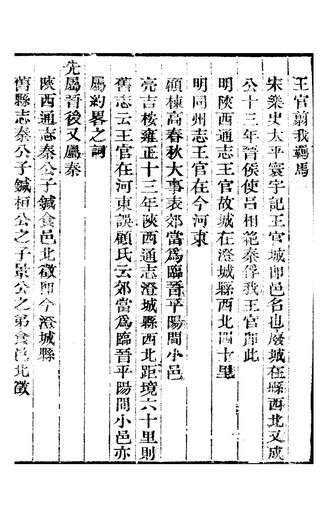 王官翦我羈馬
宋樂史太平寰宇記王官城即邑名也廢城在縣西北又成
公十三年晉侯使呂相絕秦俘我王官即此
明陝西通志王官故城在澄城縣西北四十里
明同州志王官在今河東
顧棟高春秋大事表郊當爲臨晉平陽間小邑
亮吉核雍正十三年陝西通志澄城縣西北距境六十里則
舊志云王官在河東誤顧氏云郊當爲臨晉平陽間小邑亦
屬約畧之詞
先屬晉後又屬秦
陝西通志秦公子鍼食邑北徵即今澄城縣
舊縣志秦公子鍼桓公之子景公之弟食邑北徵